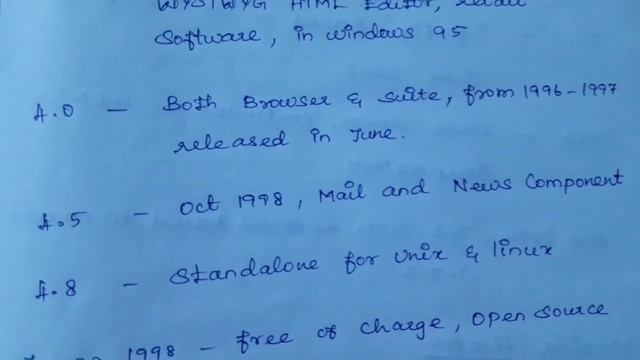 WYSIWYG HTML Editor, retail
Software, in windows 95
4.0 - Both Browser & Suite, from 1996-1997
released in June.
4.5 - Oct 1998, Mail and News Component
4.8 - Standalone for Unix & linux
1998 - free of charge, open source